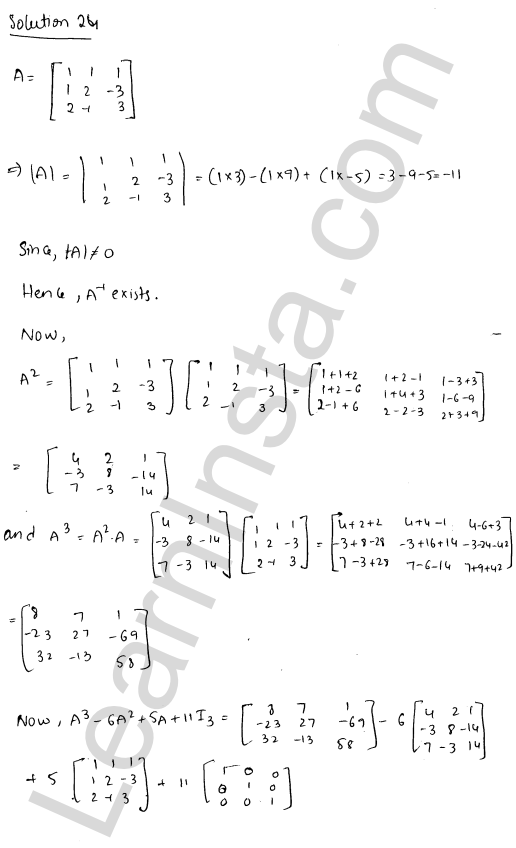 Solution 24
A = [ 1 1 1
1 2 -3
2 -1 3 ]
⇒ |A| = | 1 1 1
1 2 -3
2 -1 3 | = (1×3)-(1×9)+(1×-5) = 3-9-5=-11
Since, |A|≠0
Hence, A⁻¹ exists.
Now,
A² = [ 1 1 1
1 2 -3
2 -1 3 ] [ 1 1 1
1 2 -3
2 -1 3 ] = [ 1+1+2 1+2-1 1-3+3
1+2-6 1+4+3 1-6-9
2-1+6 2-2-3 2+3+9 ]
= [ 4 2 1
-3 8 -14
7 -3 14 ]
and A³ = A².A = [ 4 2 1
-3 8 -14
7 -3 14 ] [ 1 1 1
1 2 -3
2 -1 3 ] = [ 4+2+2 4+4-1 4-6+3
-3+8-28 -3+16+14 -3-24-42
7-3+28 7-6-14 7+9+42 ]
= [ 8 7 1
-23 27 -69
32 -13 58 ]
Now, A³-6A²+5A+11I₃ = [ 8 7 1
-23 27 -69
32 -13 58 ] - 6 [ 4 2 1
-3 8 -14
7 -3 14 ]
+ 5 [ 1 1 1
1 2 -3
2 -1 3 ] + 11 [ 1 0 0
0 1 0
0 0 1 ]
LearnInsta.com